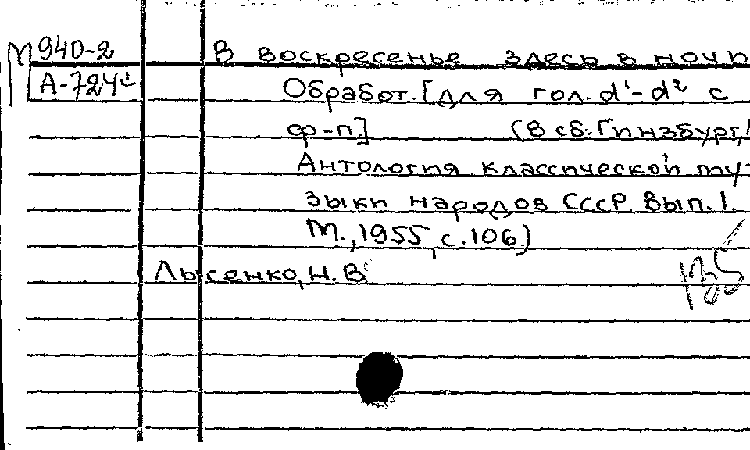 М 940-2
А-724
В воскресенье здесь в ночи
Обработ. [для гол. d¹-d² с
ф-п.] (В сб: Гинзбург,
Антология классической му-
зыки народов СССР. Вып. 1.
М., 1955, с. 106)
Лысенко, Н. В.